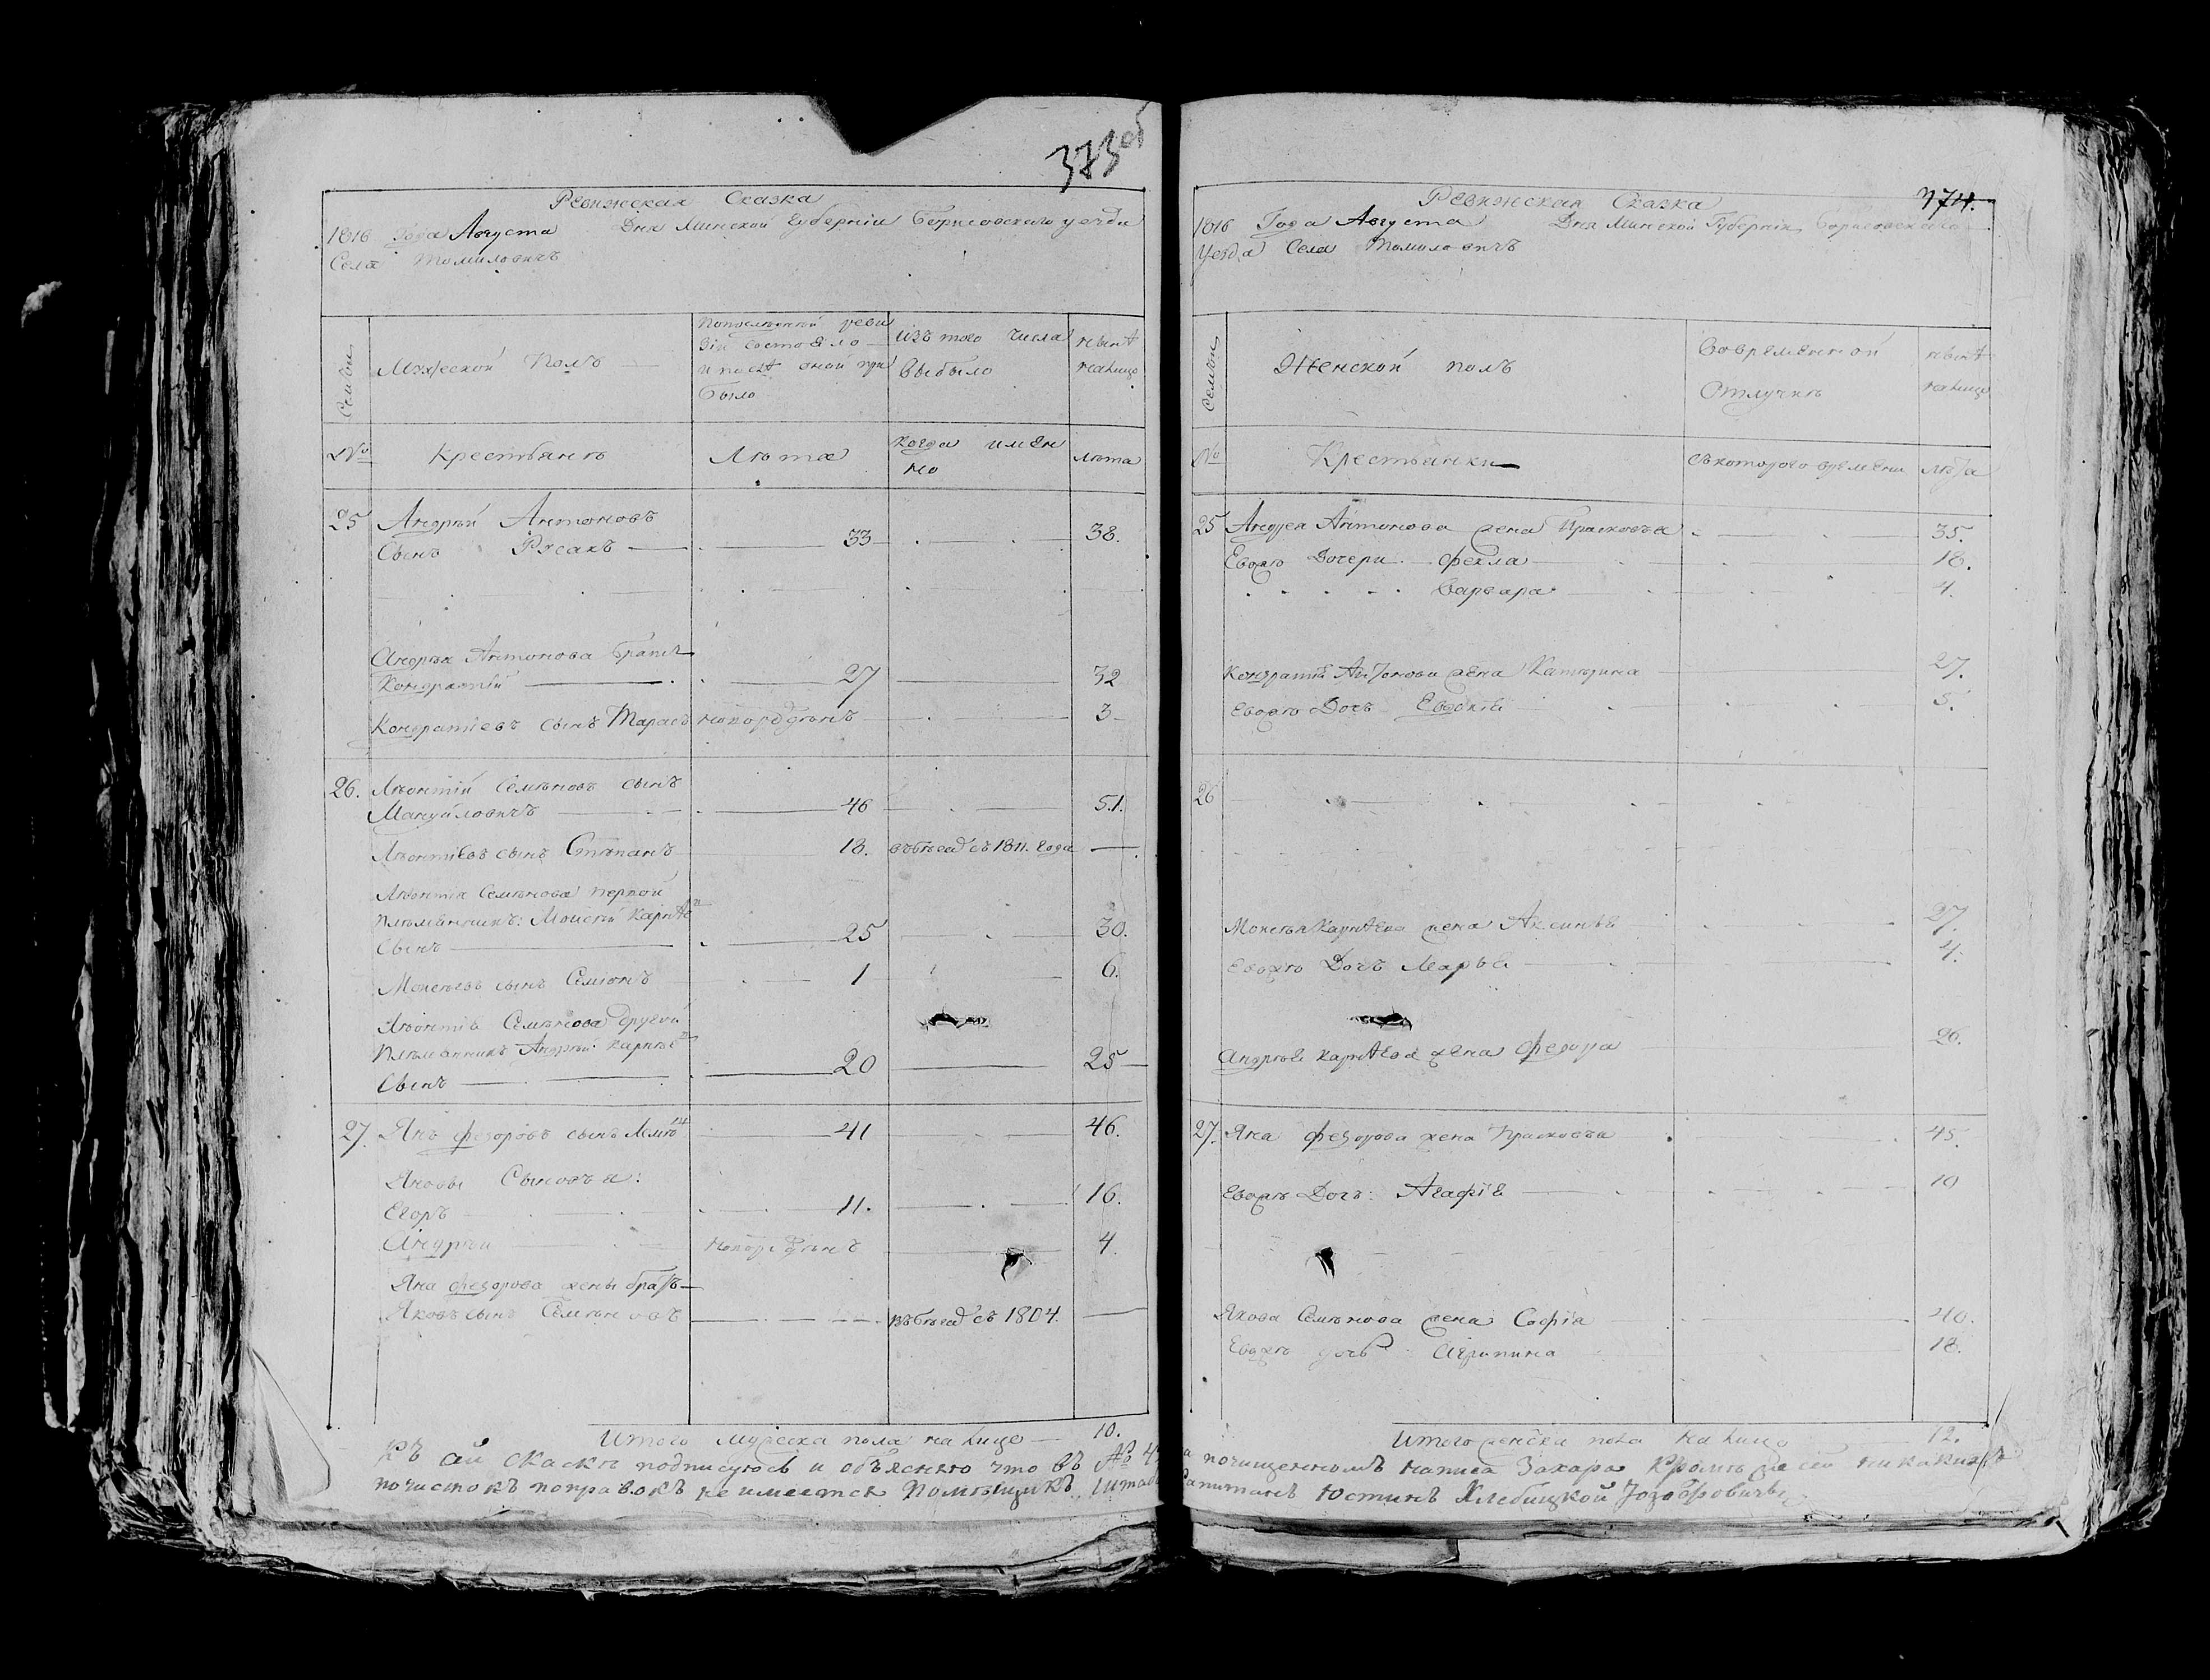 373об
Ревижская Сказка
1816 Года Августа Дня Минской Губернiи Борисовского уезда
Села Томиловичъ
Семьи
Мужеской Полъ
Попоследней реви
зiи состояло
и после оной при
было
Изъ того числа
выбыло
ныне
налицо
№
Крестьянъ
Лета
когда имен
но
лета
25 Андрей Антоновъ
Сынъ Русакъ 33 38.
Андрея Антонова братъ
Кондратiй 27 32
Кондратiевъ сынъ Тарасъ новорожденъ 3
26. Леонтiй Семеновъ сынъ
Мануйловичъ 46 51.
Леонтiевъ сынъ Степанъ 18. въбегахъ съ 1811. Года
Леонтiя Семенова первой
племянникъ: Моисей Карнеевъ
Сынъ 25 30.
Моисеевъ сынъ Семiонъ 1 6.
Леонтiя Семенова другой
племянникъ Андрей Карнеевъ
Сынъ 20 25
27. Янъ Федоровъ сынъ 41 46.
Яновы Сыновья:
Егоръ 11. 16.
Андрей новорожденъ 4
Яна Федорова жены братъ
Яковъ сынъ Семеновъ въбегахъ съ 1804.
Итого мужеска пола налице 10.
374.
Ревижская Сказка
1816 Года Августа Дня Минской Губернiи Борисовского
Уезда Села Томиловичъ
Семьи
Женской полъ
Вовременной
Отлучке
ныне
налицо
№
Крестьянки
съкоторого времени
лета
25 Андрея Антонова жена Прасковья 35.
Евожъ Дочери Фекла 18.
Варвара 4.
Кондратiя Антонова жена Катерина 27.
Евожъ Дочь Евдокiя 5.
26
Моисея Карнеева жена Аксинья 27.
Евожъ Дочь Марья 4.
Андрея Карнеева жена Федора 26.
27. Яна Федорова жена Прасковья 45.
Евожъ Дочь: Агафiя 10
Якова Семенова жена Софiя 40.
Евожъ дочь Агрипина 18.
Итого женска пола налицо 12.
Къ сей скаске подписуюсь и объясняю что въ № 4 почищенномъ написа Захара кроме же сей никакихъ
почистокъ поправокъ не имеется Помещикъ Штабъ Капитанъ Юстинъ Хлебицкой Юзефовичъ